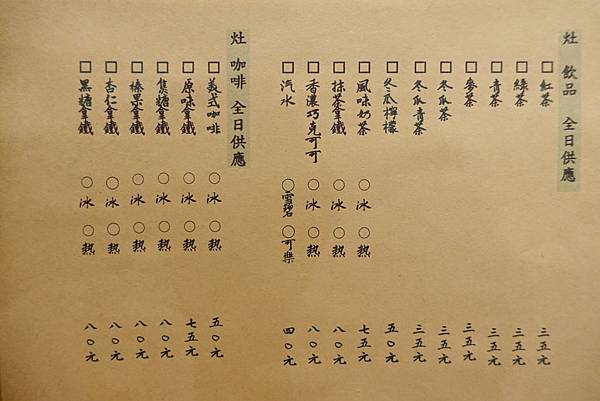 灶 飲品 全日供應
□紅茶 三五元
□綠茶 三五元
□青茶 三五元
□麥茶 三五元
□冬瓜茶 三五元
□冬瓜青茶 三五元
□冬瓜檸檬 五〇元
□風味奶茶 〇冰 〇熱 七五元
□抹茶拿鐵 〇冰 〇熱 八〇元
□香濃巧克可可 〇冰 〇熱 八〇元
□汽水 〇雪碧 〇可樂 四〇元
灶 咖啡 全日供應
□義式咖啡 〇冰 〇熱 五〇元
□原味拿鐵 〇冰 〇熱 七五元
□焦糖拿鐵 〇冰 〇熱 八〇元
□榛果拿鐵 〇冰 〇熱 八〇元
□杏仁拿鐵 〇冰 〇熱 八〇元
□黑糖拿鐵 〇冰 〇熱 八〇元